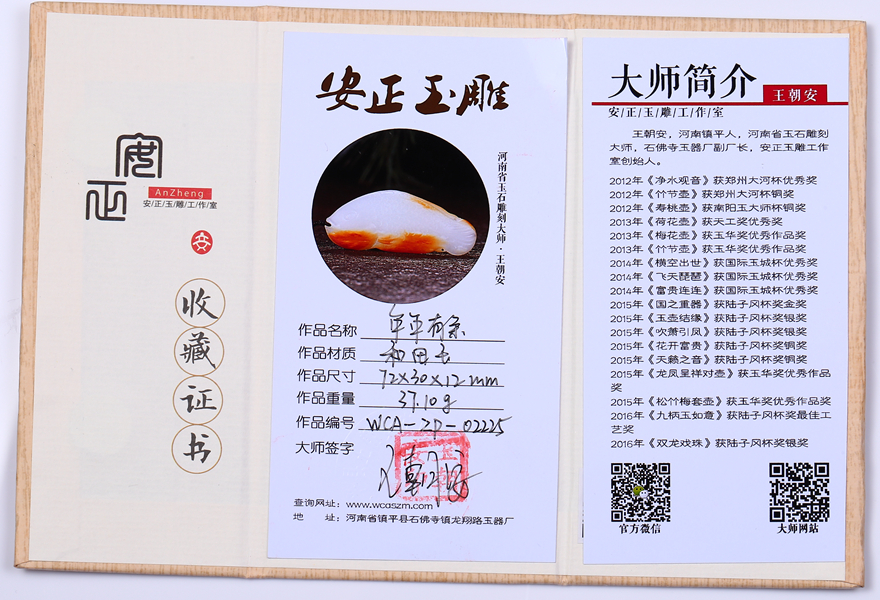 安正
AnZheng
安/正/玉/雕/工/作/室
安
收藏证书
安正玉雕
河南省玉石雕刻大师·王朝安
作品名称 年年有余
作品材质 和田玉
作品尺寸 72×30×12mm
作品重量 37.10g
作品编号 WCA-ZP-02225
大师签字
查询网址：www.wcaszm.com
地 址：河南省镇平县石佛寺镇龙翔路玉器厂
大师简介
王朝安
安/正/玉/雕/工/作/室
王朝安，河南镇平人，河南省玉石雕刻
大师，石佛寺玉器厂副厂长，安正玉雕工作
室创始人。
2012年《净水观音》获郑州大河杯优秀奖
2012年《竹节壶》获郑州大河杯铜奖
2012年《寿桃壶》获南阳玉大师杯铜奖
2013年《荷花壶》获天工奖优秀奖
2013年《梅花壶》获玉华奖优秀作品奖
2013年《竹节壶》获玉华奖优秀作品奖
2014年《横空出世》获国际玉城杯优秀奖
2014年《飞天琵琶》获国际玉城杯优秀奖
2014年《富贵连连》获国际玉城杯优秀奖
2015年《国之重器》获陆子冈杯奖金奖
2015年《玉壶结缘》获陆子冈杯奖银奖
2015年《吹萧引凤》获陆子冈杯奖银奖
2015年《花开富贵》获陆子冈杯奖铜奖
2015年《天籁之音》获陆子冈杯奖铜奖
2015年《龙凤呈祥对壶》获玉华奖优秀作品
奖
2015年《松竹梅套壶》获玉华奖优秀作品奖
2016年《九柄玉如意》获陆子冈杯奖最佳工
艺奖
2016年《双龙戏珠》获陆子冈杯奖银奖
官方微信
大师网站